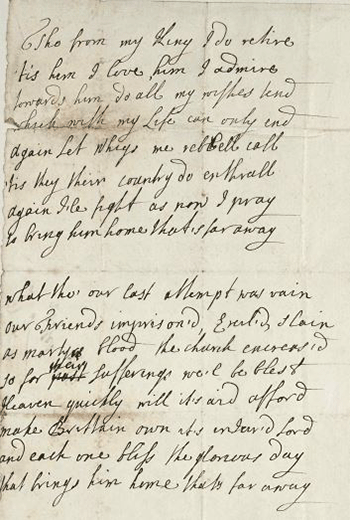 Tho from my King I do retire
tis him I love him I admire
towards him do all my wishes tend
which with my Life can only end
again Let whigs me rebbell call
tis they thir country do enthrall
again I'le fight as now I pray
to bring him home that's far away
what tho' our last attempt was vain
our Friends imprison'd, Exul'd, slain
as martyrs blood the church encreas'd
so for their sufferings we'l be blest
Heaven quickly will its aid afford
make Brittain own its injur'd Lord
and each one bless the glorious day
that brings him home thats far away